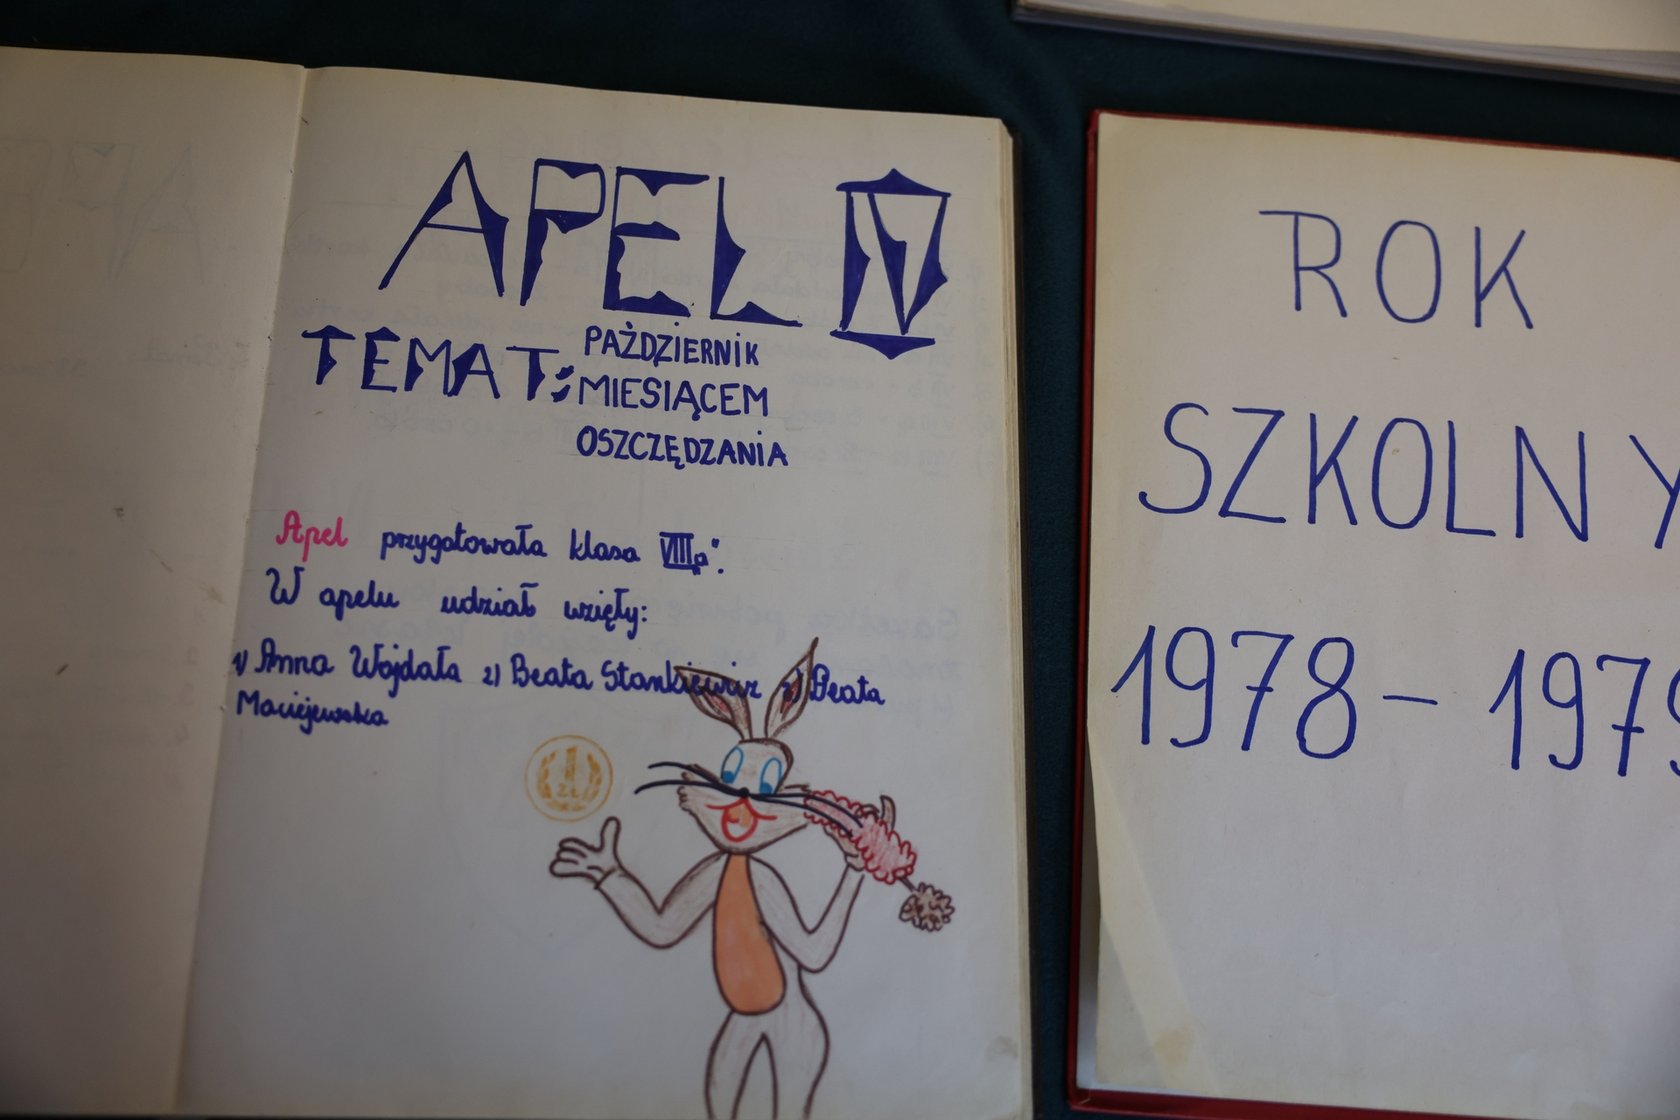 APEL IV
TEMAT:
PAŻDZIERNIK
MIESIĄCEM
OSZCZĘDZANIA
Apel przygotowała klasa VIIIa".
W apelu udział wzięły:
1) Anna Wojdała 2) Beata Stankiewicz 3) Beata
Maciejewska
1
ZŁ
ROK
SZKOLNY
1978 - 1979